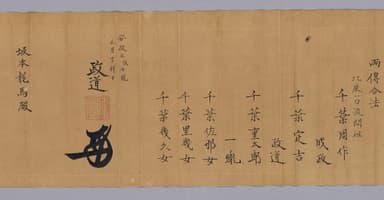 合法
北辰一刀流開祖
千葉周作
成政
千葉定吉
政道
千葉重太郎
一胤
千葉佐那女
千葉里幾女
千葉幾久女
政道
坂本龍馬殿